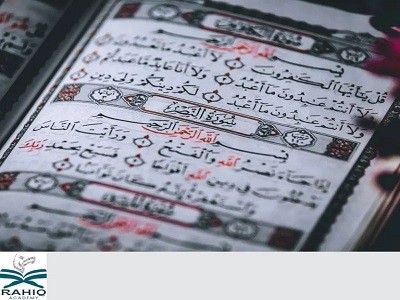 سُورَةُ الْكَافِرُونَ
بِسْمِ اللَّهِ الرَّحْمَٰنِ الرَّحِيمِ
قُلْ يَٰٓأَيُّهَا الْكَٰفِرُونَ لَآ أَعْبُدُ مَا تَعْبُدُونَ
وَلَآ أَنتُمْ عَٰبِدُونَ مَآ أَعْبُدُ وَلَآ أَنَا۠ عَابِدٌ مَّا عَبَدتُّمْ
وَلَآ أَنتُمْ عَٰبِدُونَ مَآ أَعْبُدُ لَكُمْ دِينُكُمْ وَلِيَ دِينِ
سُورَةُ النَّصْرِ
بِسْمِ اللَّهِ الرَّحْمَٰنِ الرَّحِيمِ
إِذَا جَآءَ نَصْرُ اللَّهِ وَالْفَتْحُ وَرَأَيْتَ النَّاسَ
يَدْخُلُونَ فِي دِينِ اللَّهِ أَفْوَاجًا فَسَبِّحْ بِحَمْدِ رَبِّكَ
وَاسْتَغْفِرْهُ إِنَّهُ كَانَ تَوَّابًا
RAHIQ
ACADEMY